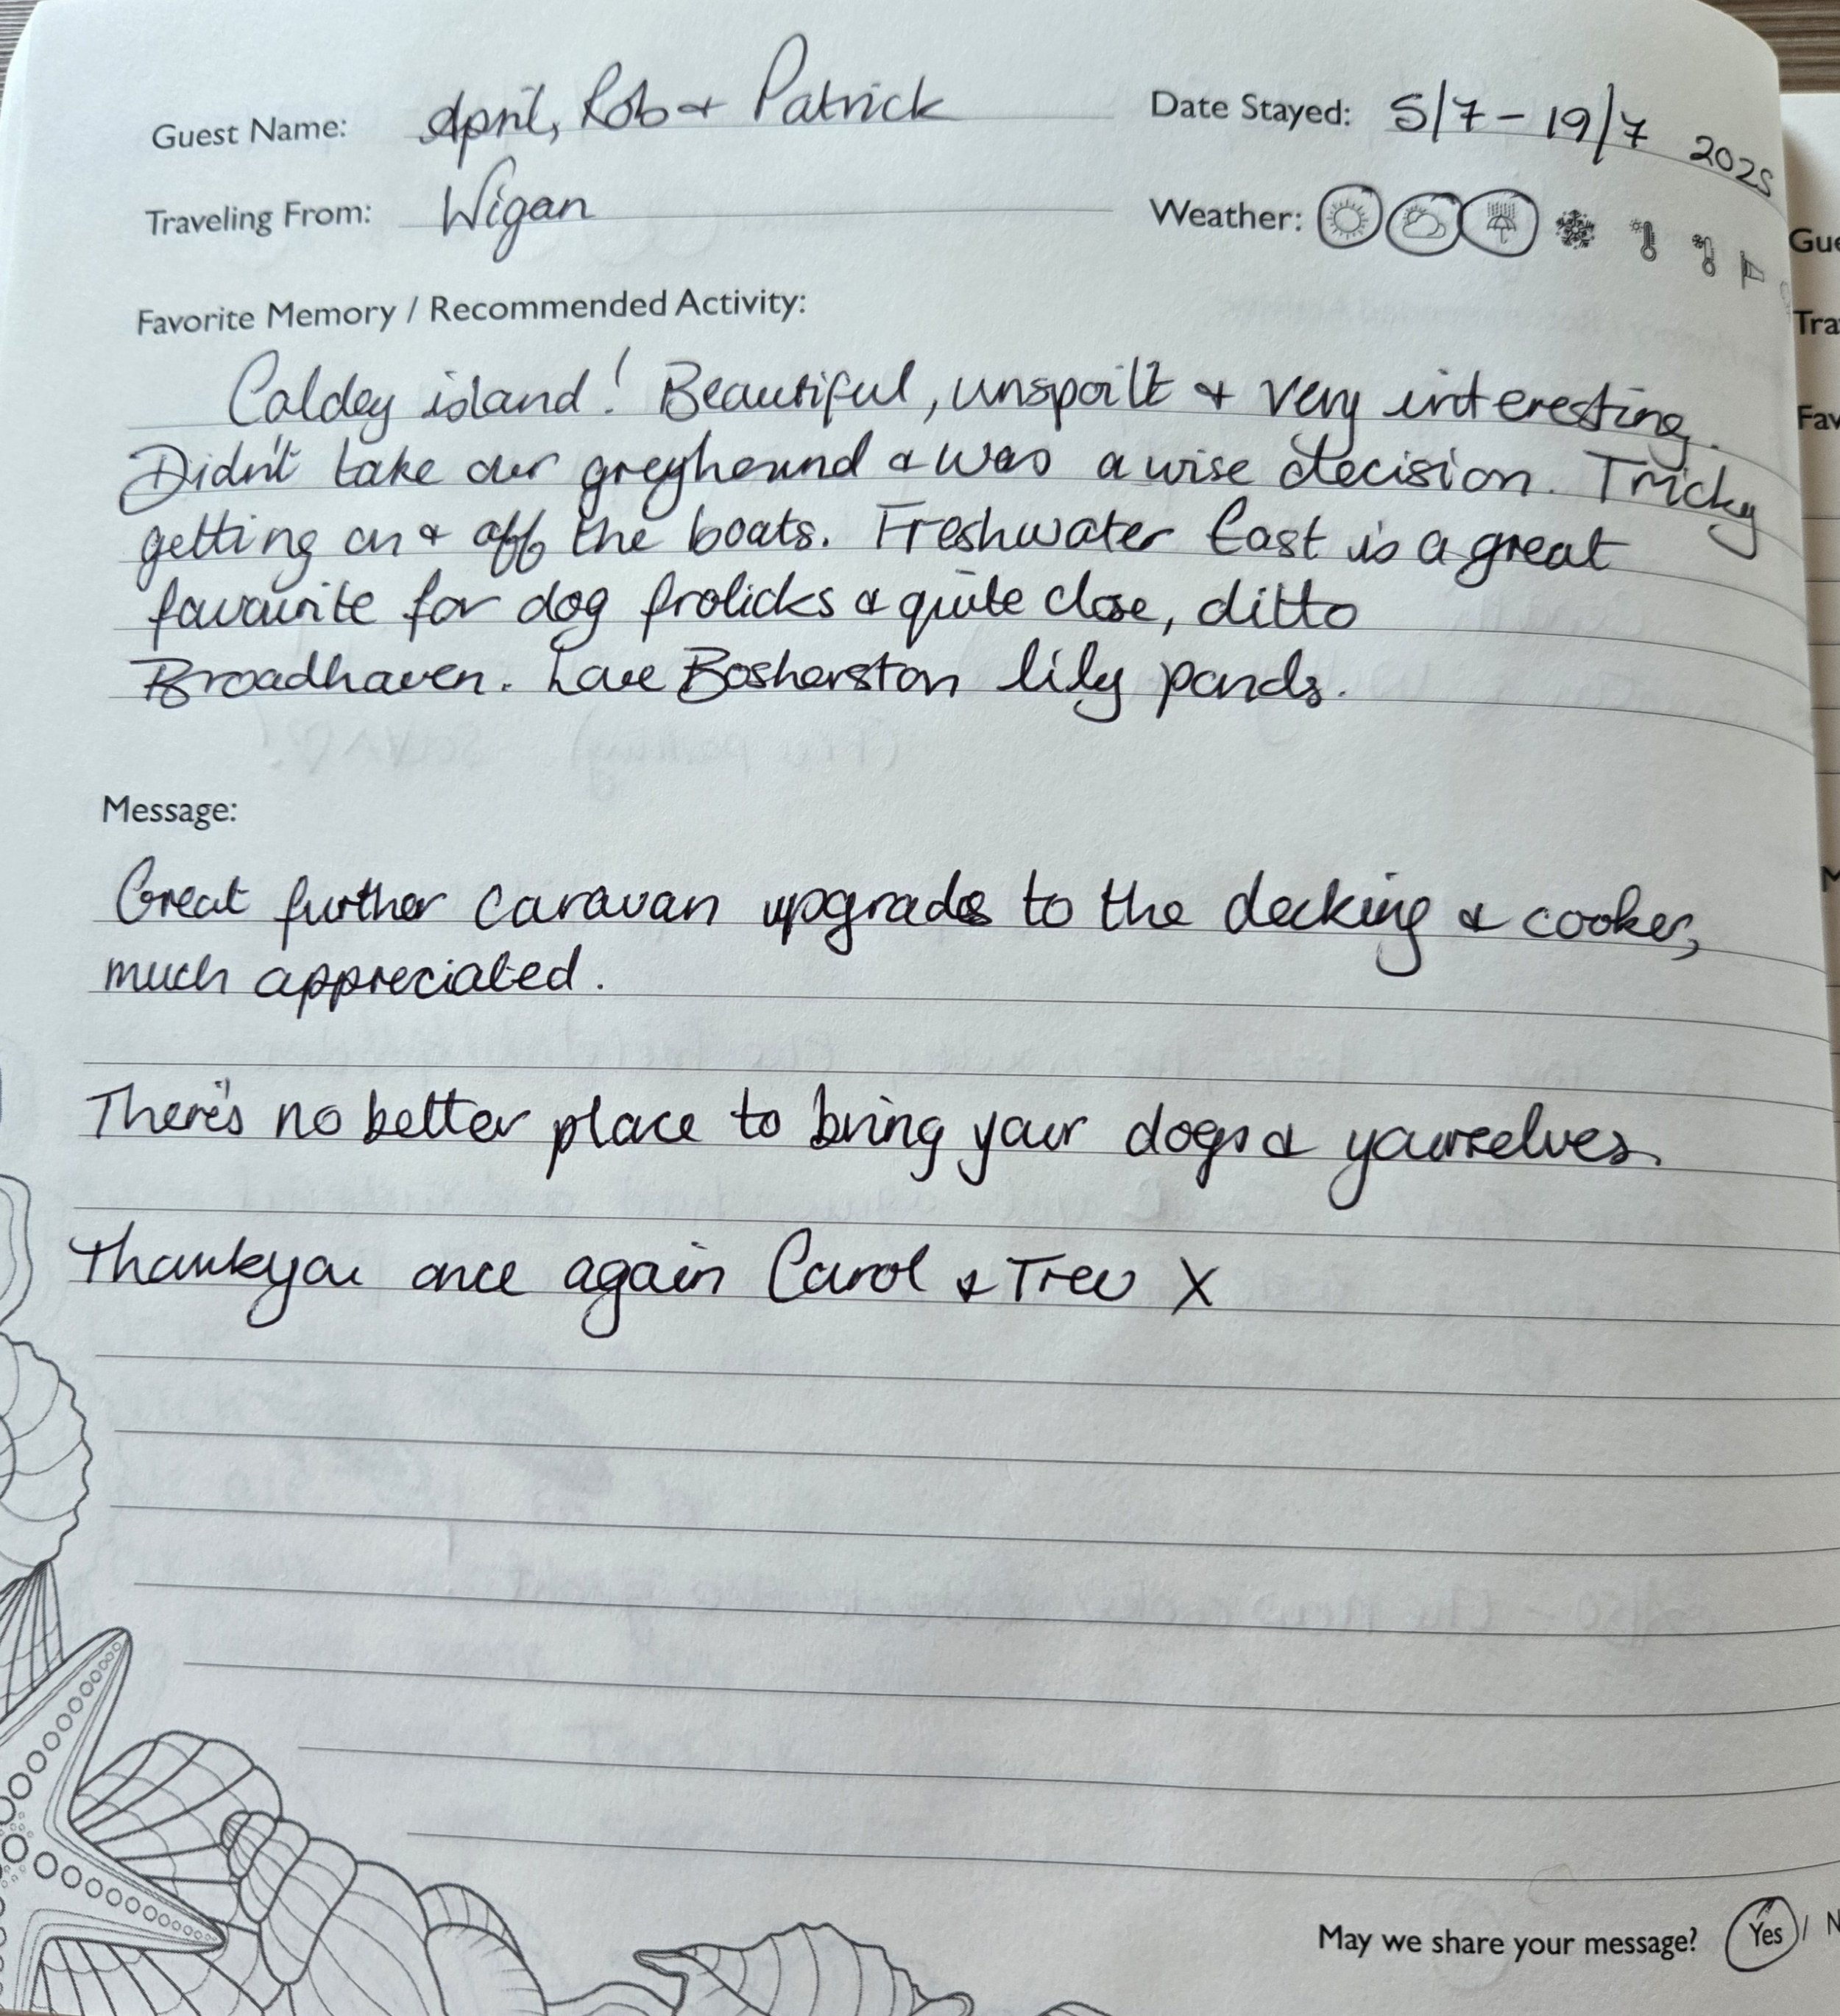 Guest Name: April, Rob & Patrick
Date Stayed: 5/7 - 19/7 2025
Traveling From: Wigan
Weather:
Favorite Memory / Recommended Activity:
Caldey island! Beautiful, unspoilt & very interesting.
Didn't take our greyhound & was a wise decision. Tricky
getting on & off the boats. Freshwater East is a great
favourite for dog frolicks & quite close, ditto
Broadhaven. Love Bosherston lily ponds.
Message:
Great further caravan upgrades to the decking & cooker,
much appreciated.
There's no better place to bring your dogs & yourselves.
Thankyou once again Carol & Trev X
May we share your message? Yes / N
Gue
Tra
Fav
M